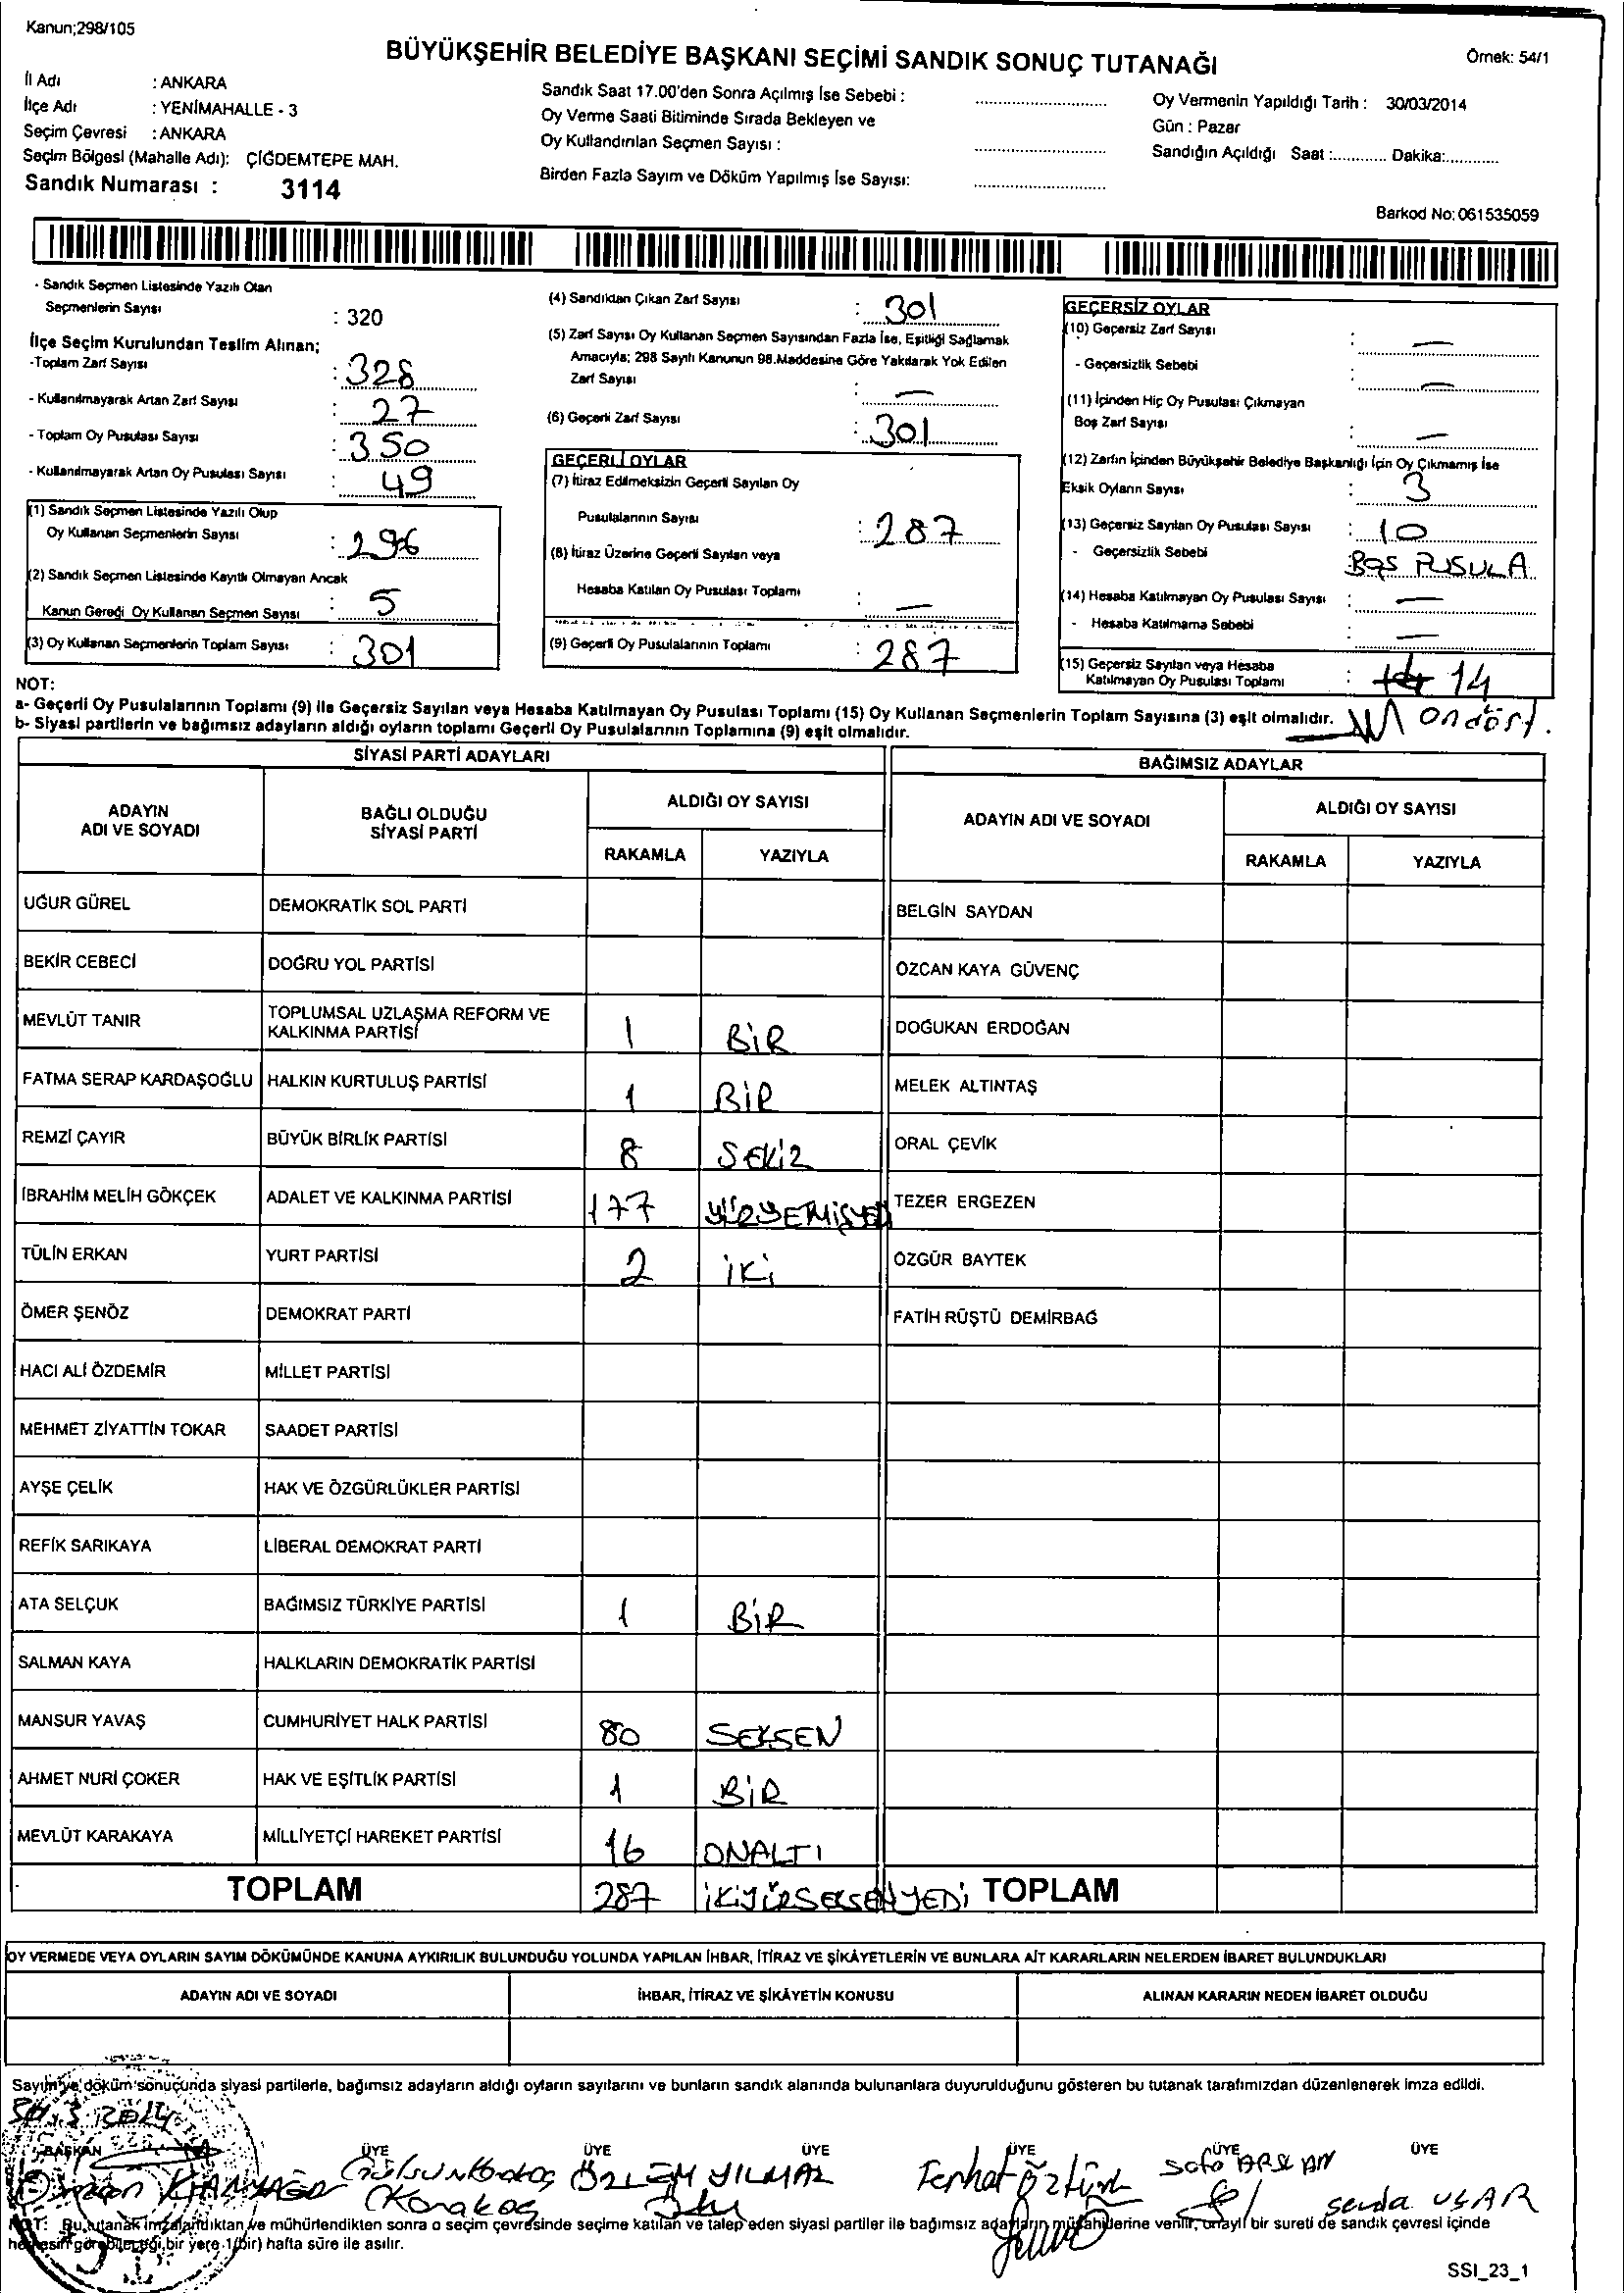 Kanun;298/105
BÜYÜKŞEHİR BELEDİYE BAŞKANI SEÇİMİ SANDIK SONUÇ TUTANAĞI
Örnek: 54/1
İl Adı : ANKARA
İlçe Adı : YENİMAHALLE - 3
Seçim Çevresi : ANKARA
Seçim Bölgesi (Mahalle Adı): ÇİĞDEMTEPE MAH.
Sandık Numarası : 3114
Sandık Saat 17.00'den Sonra Açılmış İse Sebebi :
Oy Verme Saati Bitiminde Sırada Bekleyen ve
Oy Kullandırılan Seçmen Sayısı :
Birden Fazla Sayım ve Döküm Yapılmış İse Sayısı:
Oy Vermenin Yapıldığı Tarih : 30/03/2014
Gün : Pazar
Sandığın Açıldığı Saat :............ Dakika:...........
Barkod No: 061535059
- Sandık Seçmen Listesinde Yazılı Olan
Seçmenlerin Sayısı : 320
İlçe Seçim Kurulundan Teslim Alınan;
-Toplam Zarf Sayısı : 328
- Kullanılmayarak Artan Zarf Sayısı : 27
- Toplam Oy Pusulası Sayısı : 350
- Kullanılmayarak Artan Oy Pusulası Sayısı : 49
(1) Sandık Seçmen Listesinde Yazılı Olup
Oy Kullanan Seçmenlerin Sayısı : 296
(2) Sandık Seçmen Listesinde Kayıtlı Olmayan Ancak
Kanun Gereği Oy Kullanan Seçmen Sayısı : 5
(3) Oy Kullanan Seçmenlerin Toplam Sayısı : 301
(4) Sandıktan Çıkan Zarf Sayısı : 301
(5) Zarf Sayısı Oy Kullanan Seçmen Sayısından Fazla İse, Eşitliği Sağlamak
Amacıyla; 298 Sayılı Kanunun 98.Maddesine Göre Yakılarak Yok Edilen
Zarf Sayısı : —
(6) Geçerli Zarf Sayısı : 301
GEÇERLİ OYLAR
(7) İtiraz Edilmeksizin Geçerli Sayılan Oy
Pusulalarının Sayısı : 287
(8) İtiraz Üzerine Geçerli Sayılan veya
Hesaba Katılan Oy Pusulası Toplamı : —
(9) Geçerli Oy Pusulalarının Toplamı : 287
GEÇERSİZ OYLAR
(10) Geçersiz Zarf Sayısı : —
- Geçersizlik Sebebi : —
(11) İçinden Hiç Oy Pusulası Çıkmayan
Boş Zarf Sayısı : —
(12) Zarfın İçinden Büyükşehir Belediye Başkanlığı İçin Oy Çıkmamış İse
Eksik Oyların Sayısı : 3
(13) Geçersiz Sayılan Oy Pusulası Sayısı : 10
- Geçersizlik Sebebi : BOŞ PUSULA
(14) Hesaba Katılmayan Oy Pusulası Sayısı : —
- Hesaba Katılmama Sebebi : —
(15) Geçersiz Sayılan veya Hesaba
Katılmayan Oy Pusulası Toplamı : 14
ondört.
NOT:
a- Geçerli Oy Pusulalarının Toplamı (9) ile Geçersiz Sayılan veya Hesaba Katılmayan Oy Pusulası Toplamı (15) Oy Kullanan Seçmenlerin Toplam Sayısına (3) eşit olmalıdır.
b- Siyasi partilerin ve bağımsız adayların aldığı oyların toplamı Geçerli Oy Pusulalarının Toplamına (9) eşit olmalıdır.
SİYASİ PARTİ ADAYLARI
BAĞIMSIZ ADAYLAR
ADAYIN
ADI VE SOYADI
BAĞLI OLDUĞU
SİYASİ PARTİ
ALDIĞI OY SAYISI
RAKAMLA YAZIYLA
ADAYIN ADI VE SOYADI
ALDIĞI OY SAYISI
RAKAMLA YAZIYLA
UĞUR GÜREL DEMOKRATİK SOL PARTİ BELGİN SAYDAN
BEKİR CEBECİ DOĞRU YOL PARTİSİ ÖZCAN KAYA GÜVENÇ
MEVLÜT TANIR TOPLUMSAL UZLAŞMA REFORM VE
KALKINMA PARTİSİ 1 BİR DOĞUKAN ERDOĞAN
FATMA SERAP KARDAŞOĞLU HALKIN KURTULUŞ PARTİSİ 1 BİR MELEK ALTINTAŞ
REMZİ ÇAYIR BÜYÜK BİRLİK PARTİSİ 8 SEKİZ ORAL ÇEVİK
İBRAHİM MELİH GÖKÇEK ADALET VE KALKINMA PARTİSİ 177 YÜZYEMİŞYEDİ TEZER ERGEZEN
TÜLİN ERKAN YURT PARTİSİ 2 İKİ ÖZGÜR BAYTEK
ÖMER ŞENÖZ DEMOKRAT PARTİ FATİH RÜŞTÜ DEMİRBAĞ
HACI ALİ ÖZDEMİR MİLLET PARTİSİ
MEHMET ZİYATTİN TOKAR SAADET PARTİSİ
AYŞE ÇELİK HAK VE ÖZGÜRLÜKLER PARTİSİ
REFİK SARIKAYA LİBERAL DEMOKRAT PARTİ
ATA SELÇUK BAĞIMSIZ TÜRKİYE PARTİSİ 1 BİR
SALMAN KAYA HALKLARIN DEMOKRATİK PARTİSİ
MANSUR YAVAŞ CUMHURİYET HALK PARTİSİ 80 SEKSEN
AHMET NURİ ÇOKER HAK VE EŞİTLİK PARTİSİ 1 BİR
MEVLÜT KARAKAYA MİLLİYETÇİ HAREKET PARTİSİ 16 ONALTI
TOPLAM 287 İKİYÜZSEKSENYEDİ TOPLAM
OY VERMEDE VEYA OYLARIN SAYIM DÖKÜMÜNDE KANUNA AYKIRILIK BULUNDUĞU YOLUNDA YAPILAN İHBAR, İTİRAZ VE ŞİKÂYETLERİN VE BUNLARA AİT KARARLARIN NELERDEN İBARET BULUNDUKLARI
ADAYIN ADI VE SOYADI İHBAR, İTİRAZ VE ŞİKÂYETİN KONUSU ALINAN KARARIN NEDEN İBARET OLDUĞU
Sayım ve döküm sonucunda siyasi partilerle, bağımsız adayların aldığı oyların sayılarını ve bunların sandık alanında bulunanlara duyurulduğunu gösteren bu tutanak tarafımızdan düzenlenerek imza edildi.
BAŞKAN ÜYE ÜYE ÜYE ÜYE ÜYE ÜYE
Gülsün Karakoç ÖZLEM YILMAZ Ferhat Öztürk Sefa ARSLAN
Karakoç Sevda UÇAR
NOT: Bu tutanak imzalandıktan ve mühürlendikten sonra o seçim çevresinde seçime katılan ve talep eden siyasi partiler ile bağımsız adayların müşahitlerine verilir, onaylı bir sureti de sandık çevresi içinde
herkesin görebileceği bir yere 1(bir) hafta süre ile asılır.
SSI_23_1